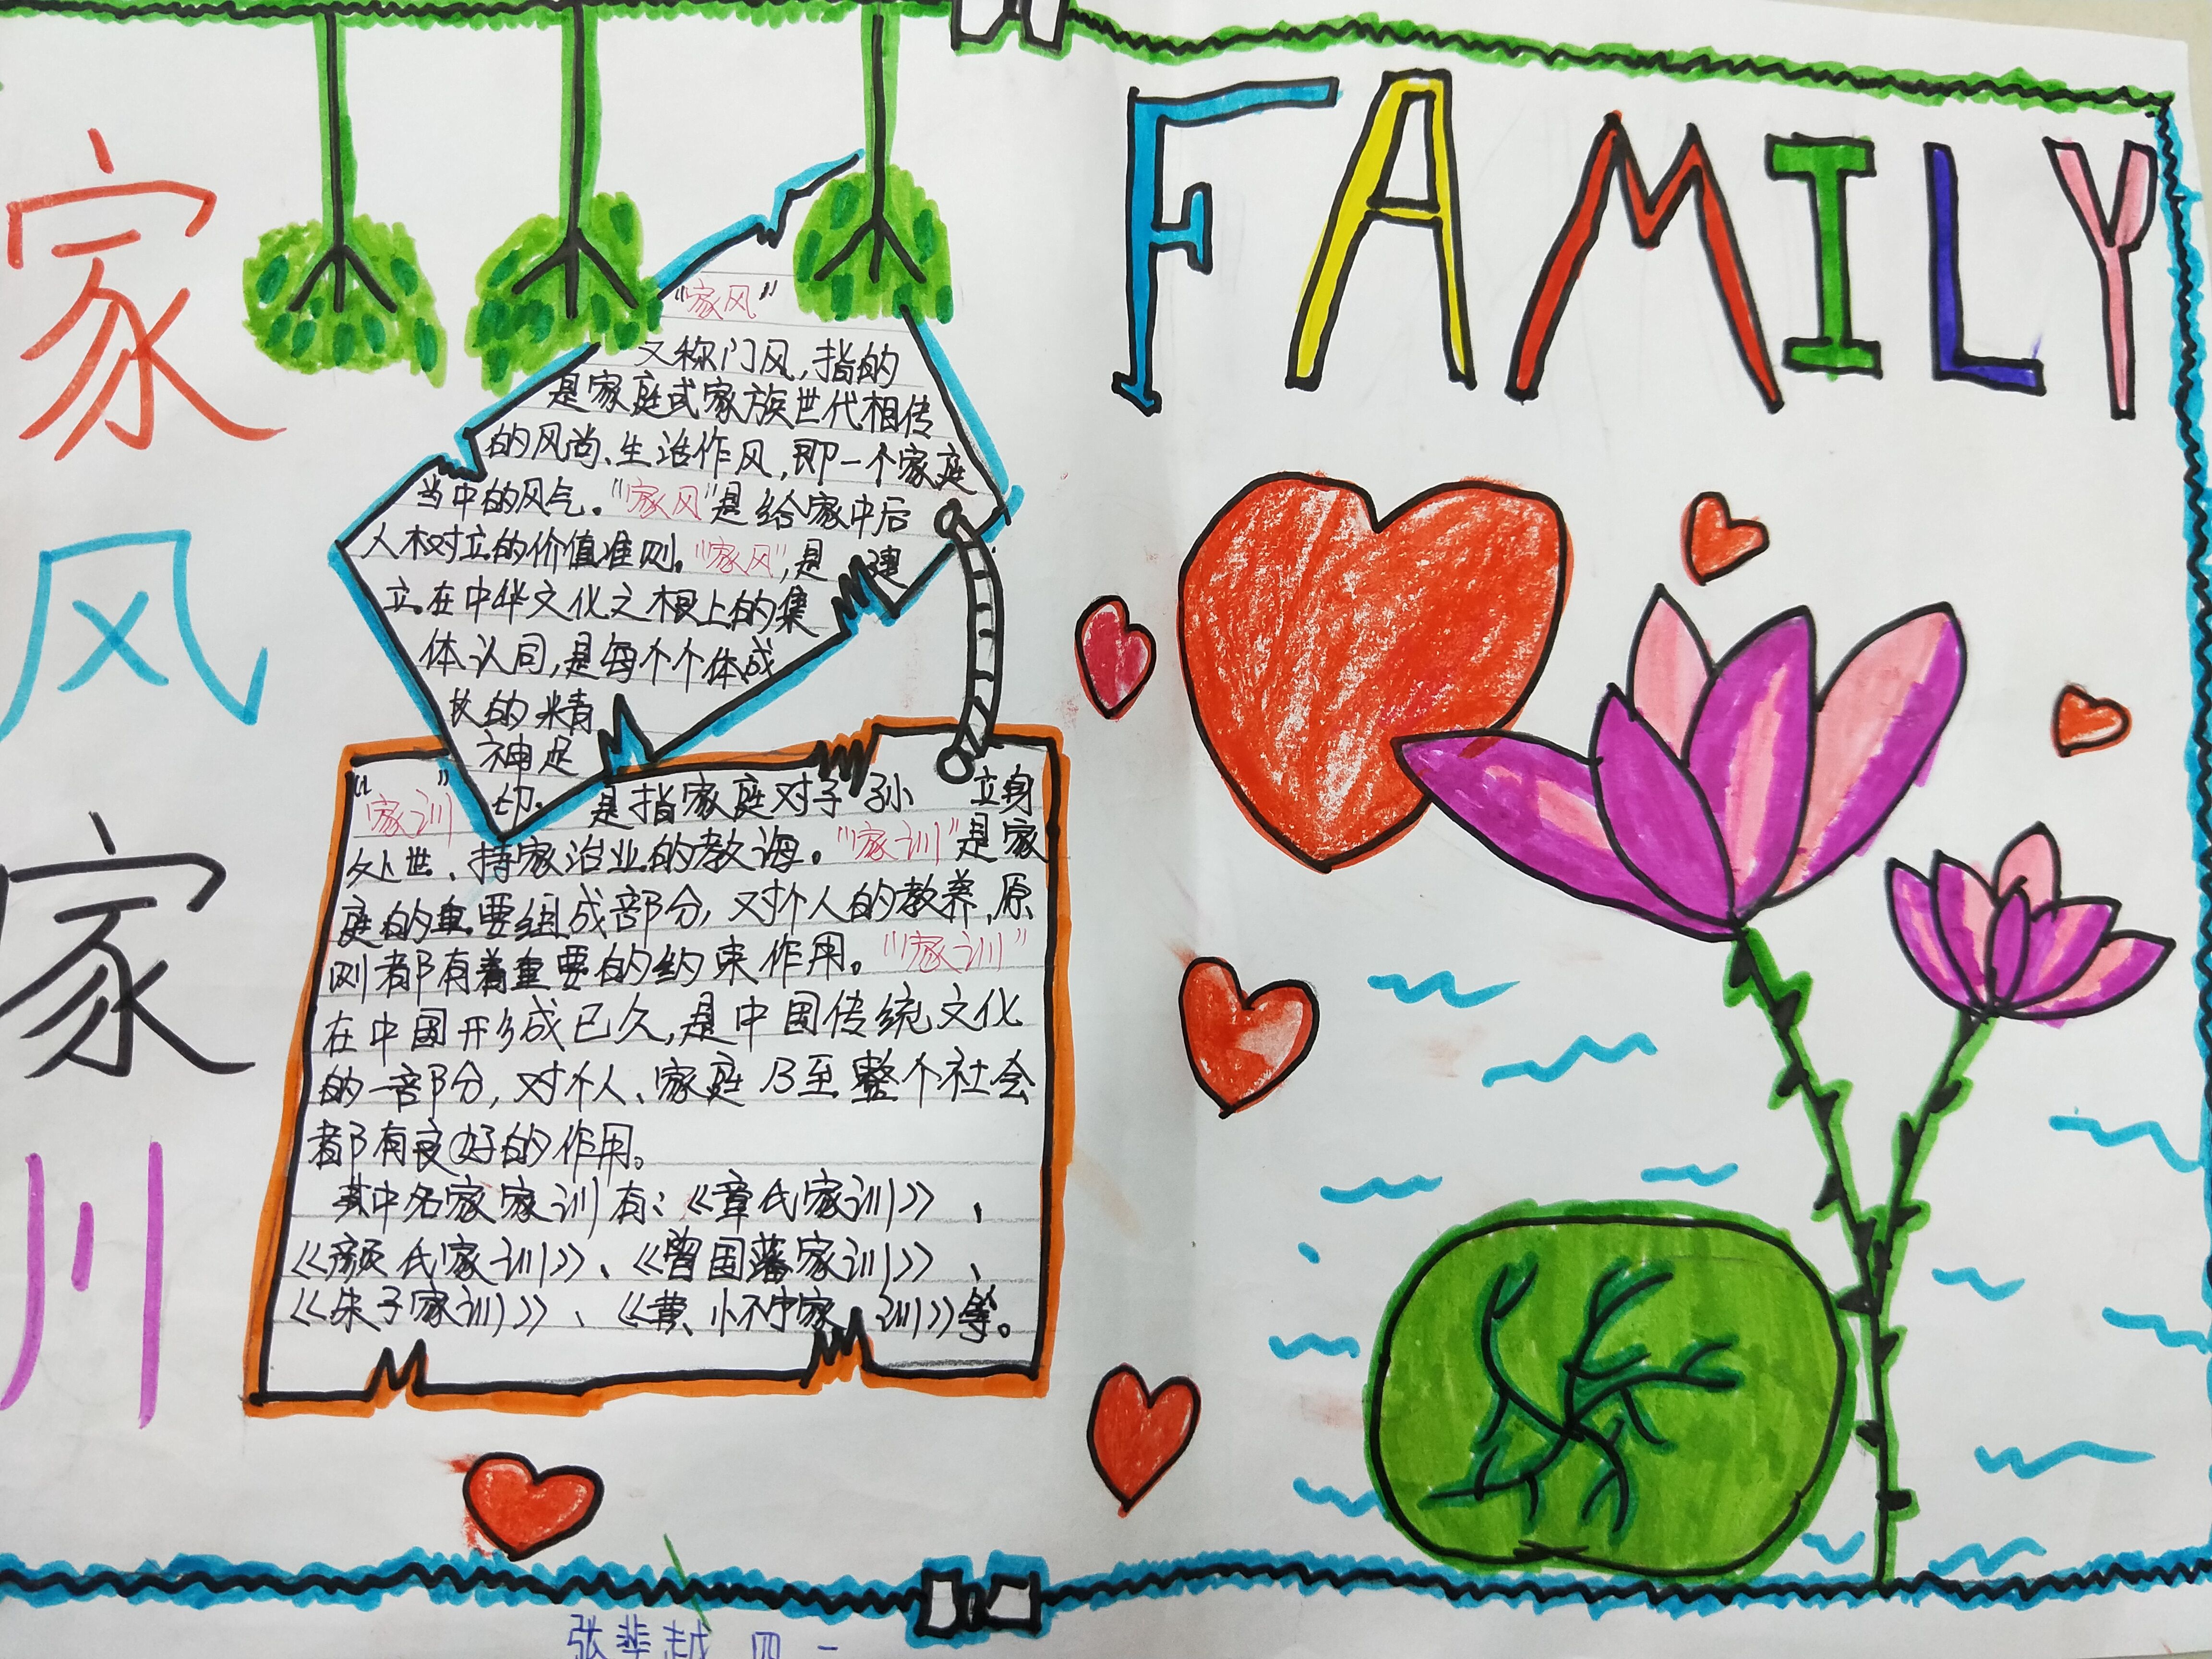 家
风
家
训
FAMILY
"家风"
又称门风,指的
是家庭或家族世代相传
的风尚、生活作风,即一个家庭
当中的风气。"家风"是给家中后
人树立的价值准则。"家风",是建
立在中华文化之根上的集
体认同,是每个个体成
长的精
神足
印。
"家训"是指家庭对子孙立身
处世、持家治业的教诲。"家训"是家
庭的重要组成部分,对个人的教养、原
则都有着重要的约束作用。"家训"
在中国形成已久,是中国传统文化
的一部分,对个人、家庭乃至整个社会
都有良好的作用。
其中名家家训有:《章氏家训》、
《颜氏家训》、《曾国藩家训》、
《朱子家训》、《黄小不宁家训》等。
张 越 四 一